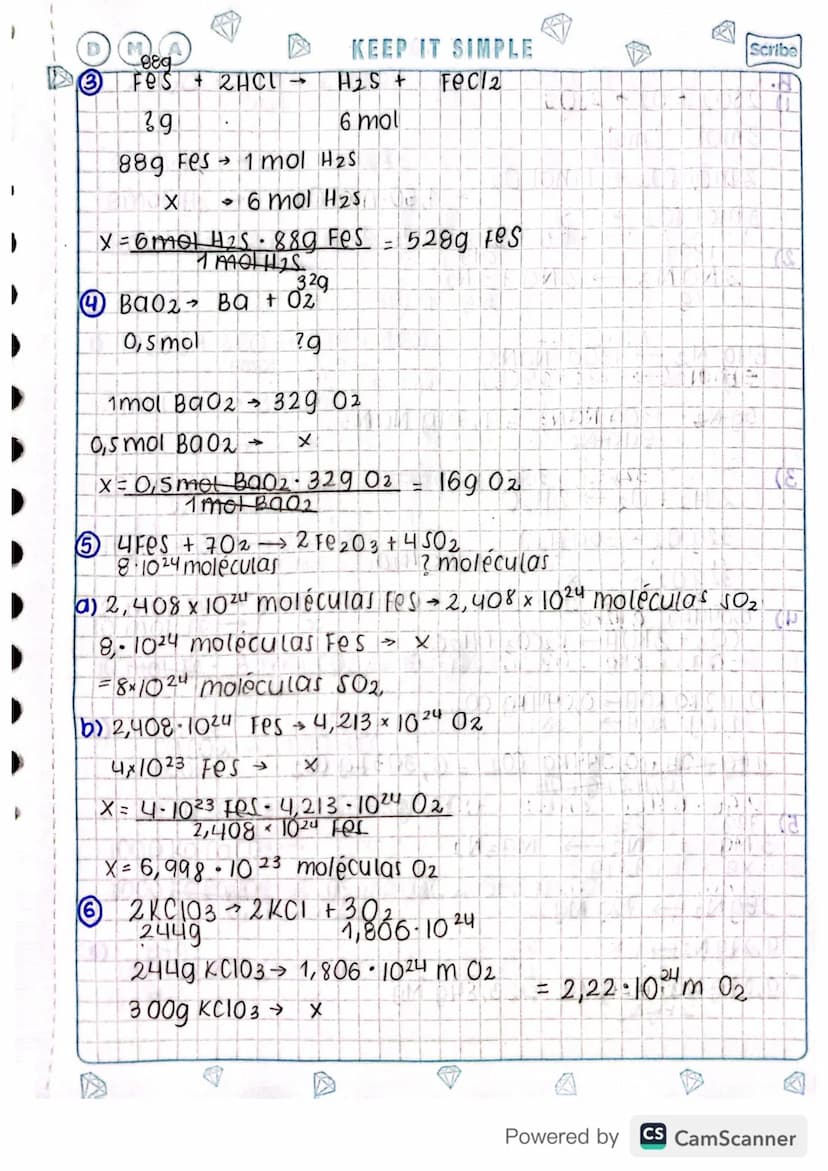 D M A KEEP IT SIMPLE Scribe
88g
③ FeS + 2HCl → H2S + FeCl2
?g 6 mol
88g FeS → 1 mol H2S
x → 6 mol H2S
x = 6 mol H2S · 88g FeS = 528g FeS
1 mol H2S
32g
④ BaO2 → Ba + O2
0,5 mol ?g
1mol BaO2 → 32g O2
0,5 mol BaO2 → x
x = 0,5 mol BaO2 · 32g O2 = 16g O2
1 mol BaO2
⑤ 4FeS + 7O2 → 2Fe2O3 + 4SO2
8·10²⁴ moléculas ? moléculas
a) 2,408 x 10²⁴ moléculas FeS → 2,408 x 10²⁴ moléculas SO2
8,· 10²⁴ moléculas FeS → x
= 8x10²⁴ moléculas SO2,
b) 2,408·10²⁴ FeS → 4,213 x 10²⁴ O2
4x10²³ FeS → x
x = 4·10²³ FeS · 4,213·10²⁴ O2
2,408 x 10²⁴ FeS
x = 6,998 · 10²³ moléculas O2
⑥ 2KClO3 → 2KCl + 3O2
244g 1,806·10²⁴
244g KClO3 → 1,806·10²⁴ m O2
= 2,22·10²⁴ m O2
300g KClO3 → x
Powered by CS CamScanner